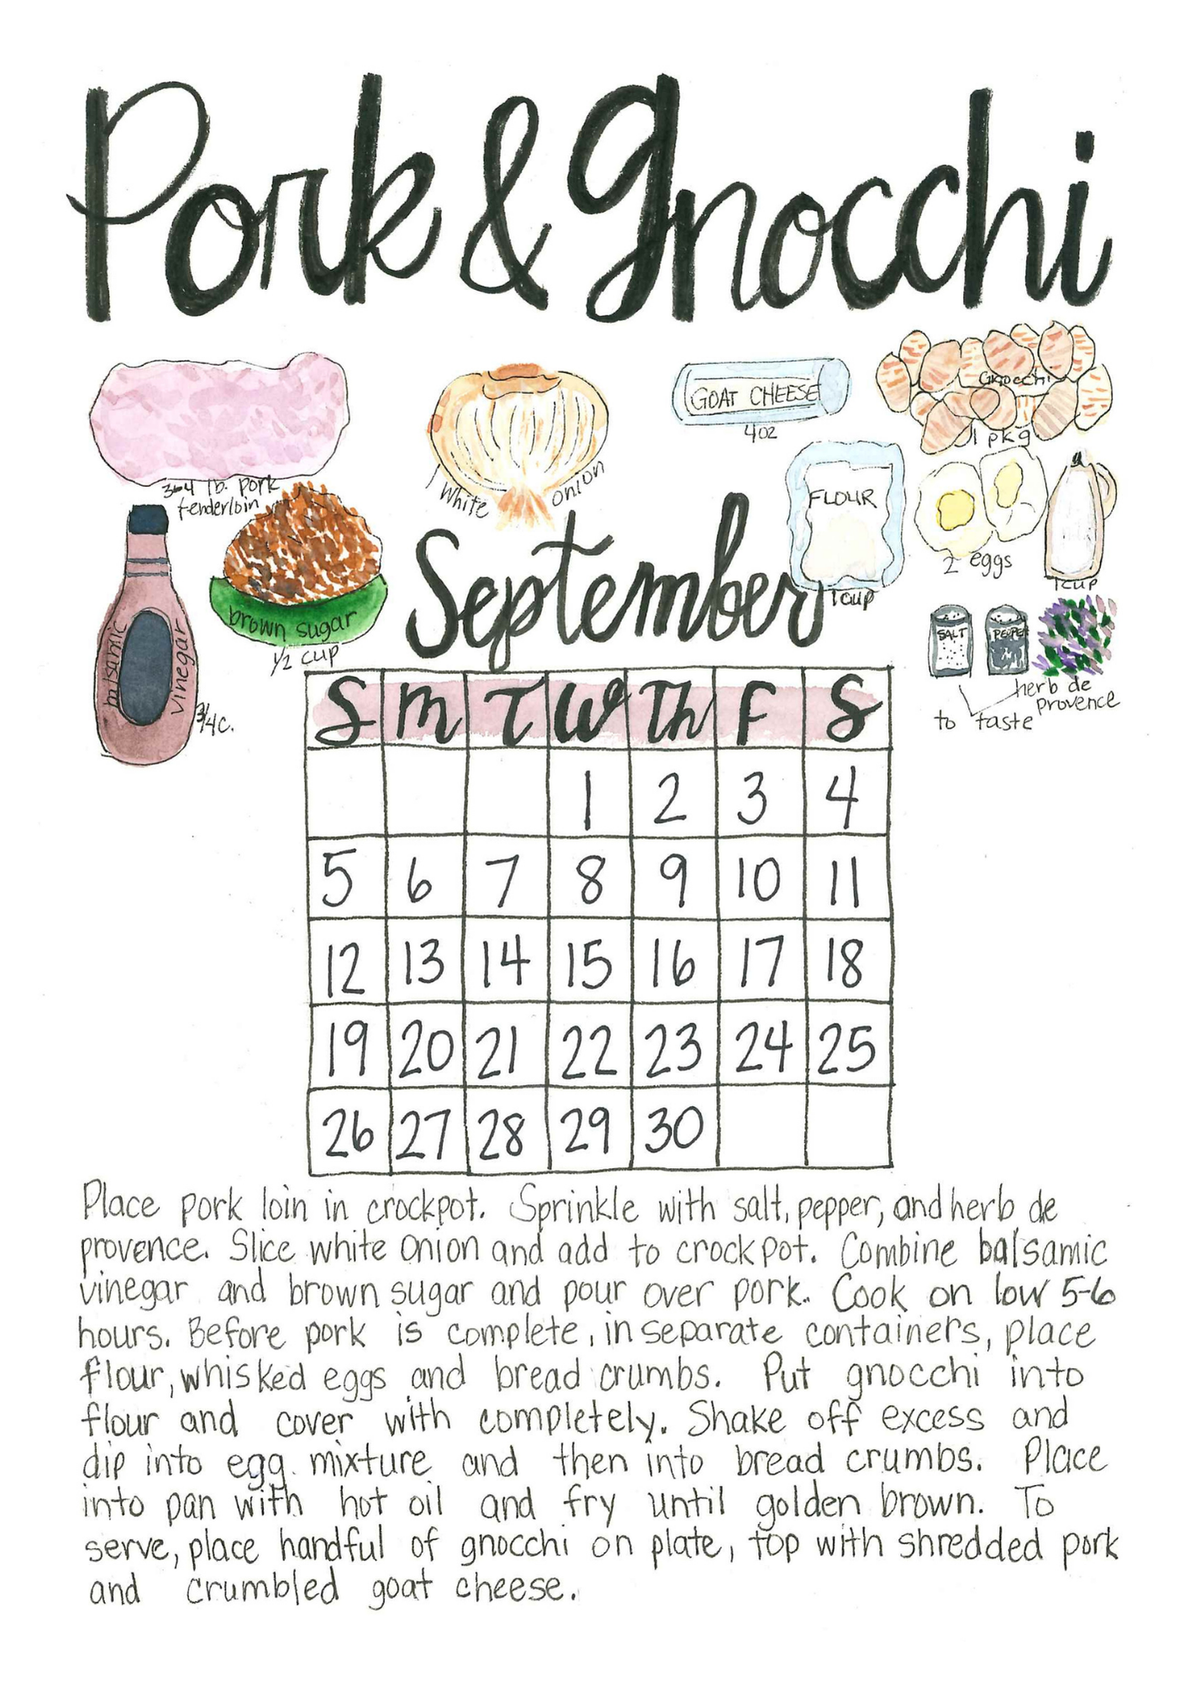 Pork & Gnocchi
lb. pork
tenderloin
1 White onion
GOAT CHEESE
4oz
Gnocchi
1 pkg
FLOUR
1cup
2 eggs
1cup
balsamic vinegar
3/4c.
brown sugar
1/2 cup
SALT
herb de
provence
to taste
September
S M T W Th F S
1 2 3 4
5 6 7 8 9 10 11
12 13 14 15 16 17 18
19 20 21 22 23 24 25
26 27 28 29 30
Place pork loin in crockpot. Sprinkle with salt, pepper, and herb de
provence. Slice white onion and add to crockpot. Combine balsamic
vinegar and brown sugar and pour over pork. Cook on low 5-6
hours. Before pork is complete, in separate containers, place
flour, whisked eggs and bread crumbs. Put gnocchi into
flour and cover with completely. Shake off excess and
dip into egg mixture and then into bread crumbs. Place
into pan with hot oil and fry until golden brown. To
serve, place handful of gnocchi on plate, top with shredded pork
and crumbled goat cheese.